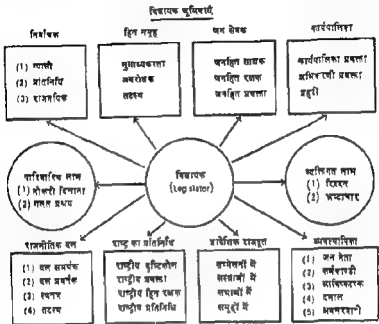 विधायक भूमिकाएँ
निर्वाचक
(1) न्यासी
(2) प्रतिनिधि
(3) राजनयिक
हित समूह
सुसाध्यकर्ता
अवरोधक
तटस्थ
जन सेवक
जनहित साधक
जनहित रक्षक
जनहित प्रवक्ता
कार्यपालिका
कार्यपालिका प्रवक्ता
अधिकारी प्रवक्ता
प्रहरी
पारिवारिक लाभ
(1) नौकरी दिलाना
(2) गलत प्रश्रय
विधायक
(Legislator)
व्यक्तिगत लाभ
(1)
(2) भ्रष्टाचार
राजनीतिक दल
(1) दल समर्थक
(2) दल प्रवर्तक
(3) स्वतंत्र
(4) तटस्थ
राष्ट्र का प्रतिनिधि
राष्ट्रीय दृष्टिकोण
राष्ट्रीय प्रवक्ता
राष्ट्रीय हित रक्षक
राष्ट्रीय प्रतिनिधि
प्रादेशिक राजदूत
सम्मेलनों में
संस्थाओं में
सभाओं में
समूहों में
व्यवस्थापिका
(1) जन नेता
(2) कर्मकाण्डी
(3) आविष्कारक
(4) दलाल
(5) अवसरवादी